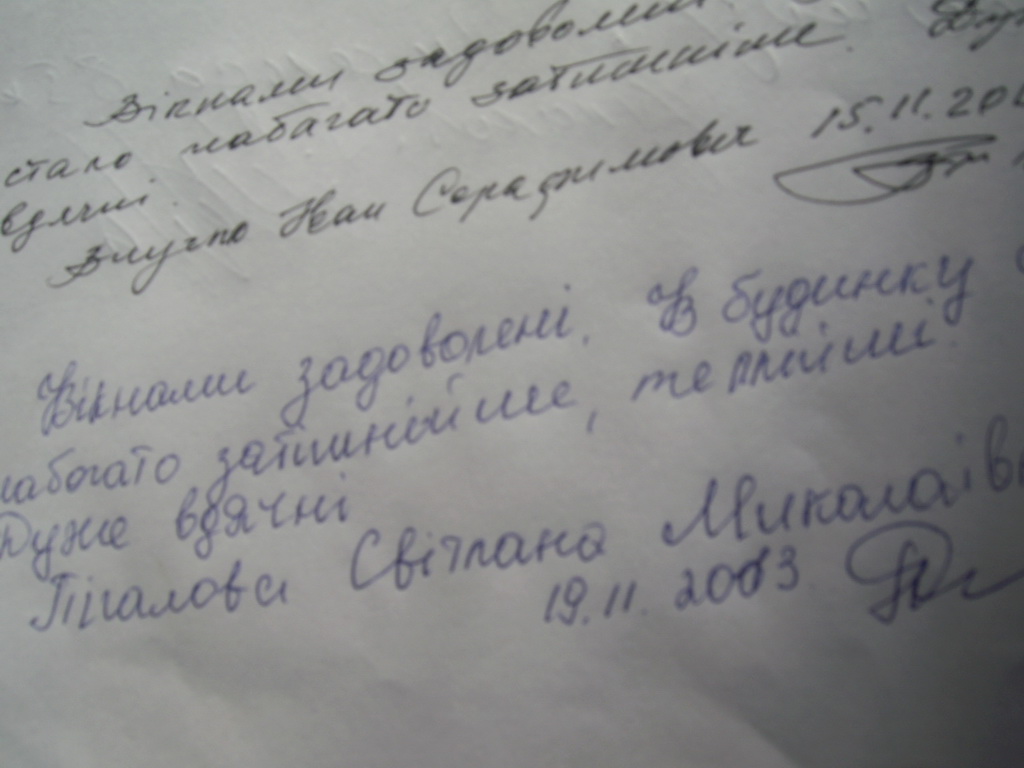 Вікнами задоволені
стало набагато затишніше.
вдячні.
Іван Серафимович 15.11.200
Вікнами задоволені. В будинку
набагато затишнійше, теплійши.
Дуже вдячні
Пігалова Світлана Миколаївн
19.11.2003